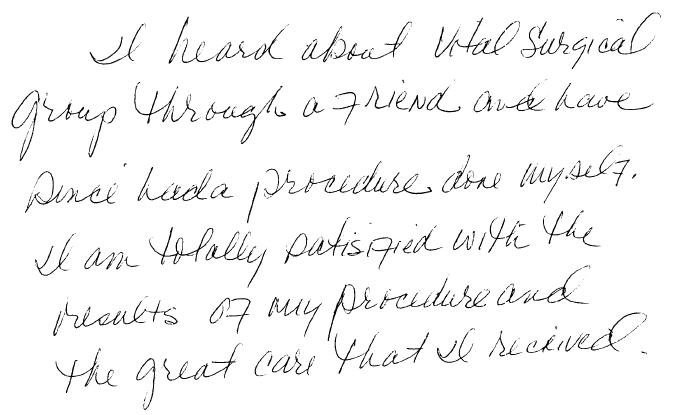 I heard about Vital Surgical
group through a friend and have
since had a procedure done myself.
I am totally satisfied with the
results of my procedure and
the great care that I received.